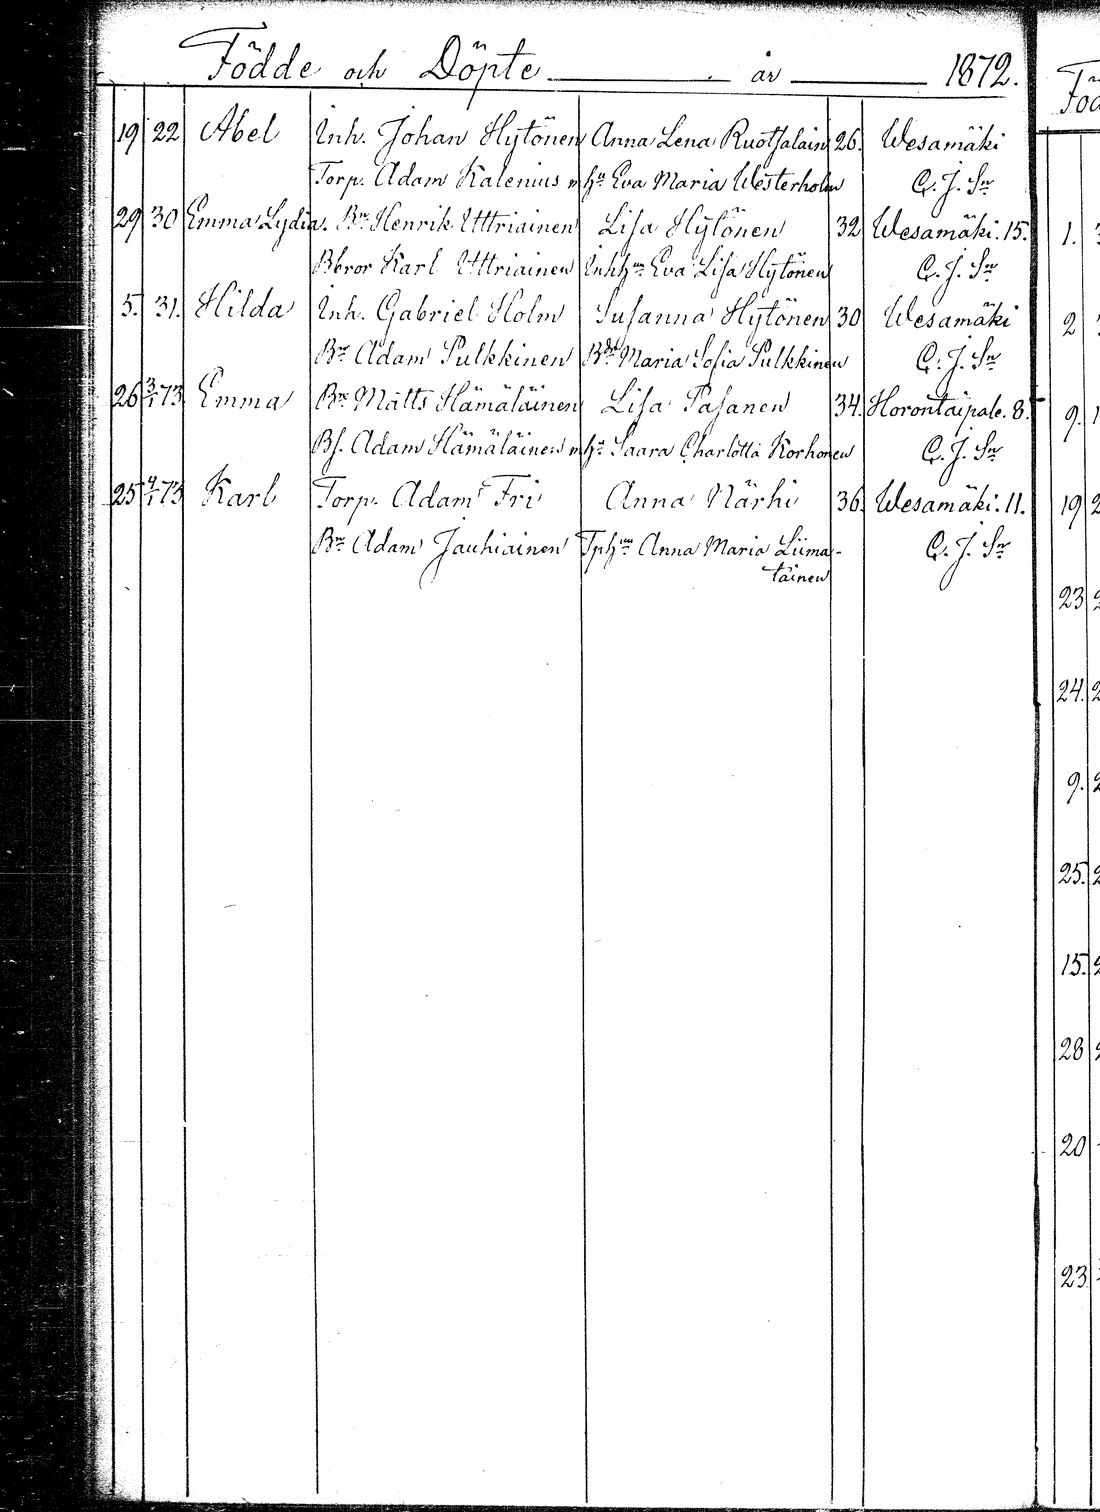 Födde och Döpte år 1872.
19 22 Abel Inh. Johan Hytönen Anna Lena Ruotsalain 26. Wesamäki
Torp. Adam Kalenius m hu Eva Maria Westerholm C. J. Sn
29 30 Emma Lydia. Bn Henrik Uttriainen Lisa Hytönen 32 Wesamäki. 15.
Bbror Karl Uttriainen Inhhun Eva Lisa Hytönen C. J. Sn
5. 31. Hilda Inh. Gabriel Holm Susanna Hytönen 30 Wesamäki
Bn Adam Pulkkinen Bdr Maria Sofia Pulkkinen C. J. Sn
26 3/1 73 Emma Bn Matts Hämäläinen Lisa Pasanen 34. Horontaipale. 8.
Bs. Adam Hämäläinen m hu Saara Charlotta Korhonen C. J. Sn
25 4/1 73 Karl Torp. Adam Fri Anna Närhi 36 Wesamäki. 11.
Bn Adam Jauhiainen Tphun Anna Maria Liima-
täinen C. J. Sn
Föd
1.
2
9.
19
23
24.
9.
25.
15.
28
20
23